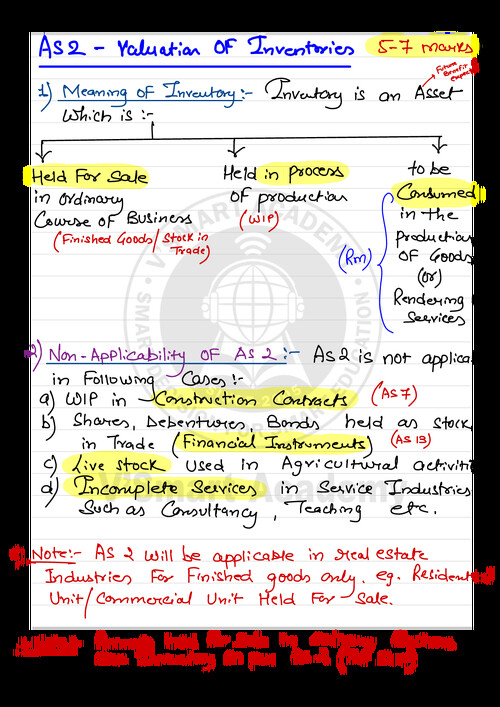 AS2 - Valuation OF Inventories 5-7 marks
Future Benefit expect
1) Meaning of Inventory:- Inventory is an Asset
which is :-
Held For Sale
in ordinary
Course of Business
(Finished Goods/Stock in
Trade)
Held in process
of production
(WIP)
to be
Consumed
in the
Production
OF Goods
(or)
Rendering
Services
(Rm)
2) Non-Applicability OF AS 2:- AS2 is not applica
in Following Cases:-
a) WIP in Construction Contracts (AS 7)
b) Shares, Debentures, Bonds held as stock
in Trade (Financial Instruments) (AS 13)
c) Live stock used in Agricultural activiti
d) Incomplete Services in Service Industries
Such as Consultancy, Teaching etc.
Note:- AS 2 will be applicable in real estate
Industries For Finished goods only. eg. Resident
Unit/Commercial Unit Held For Sale.